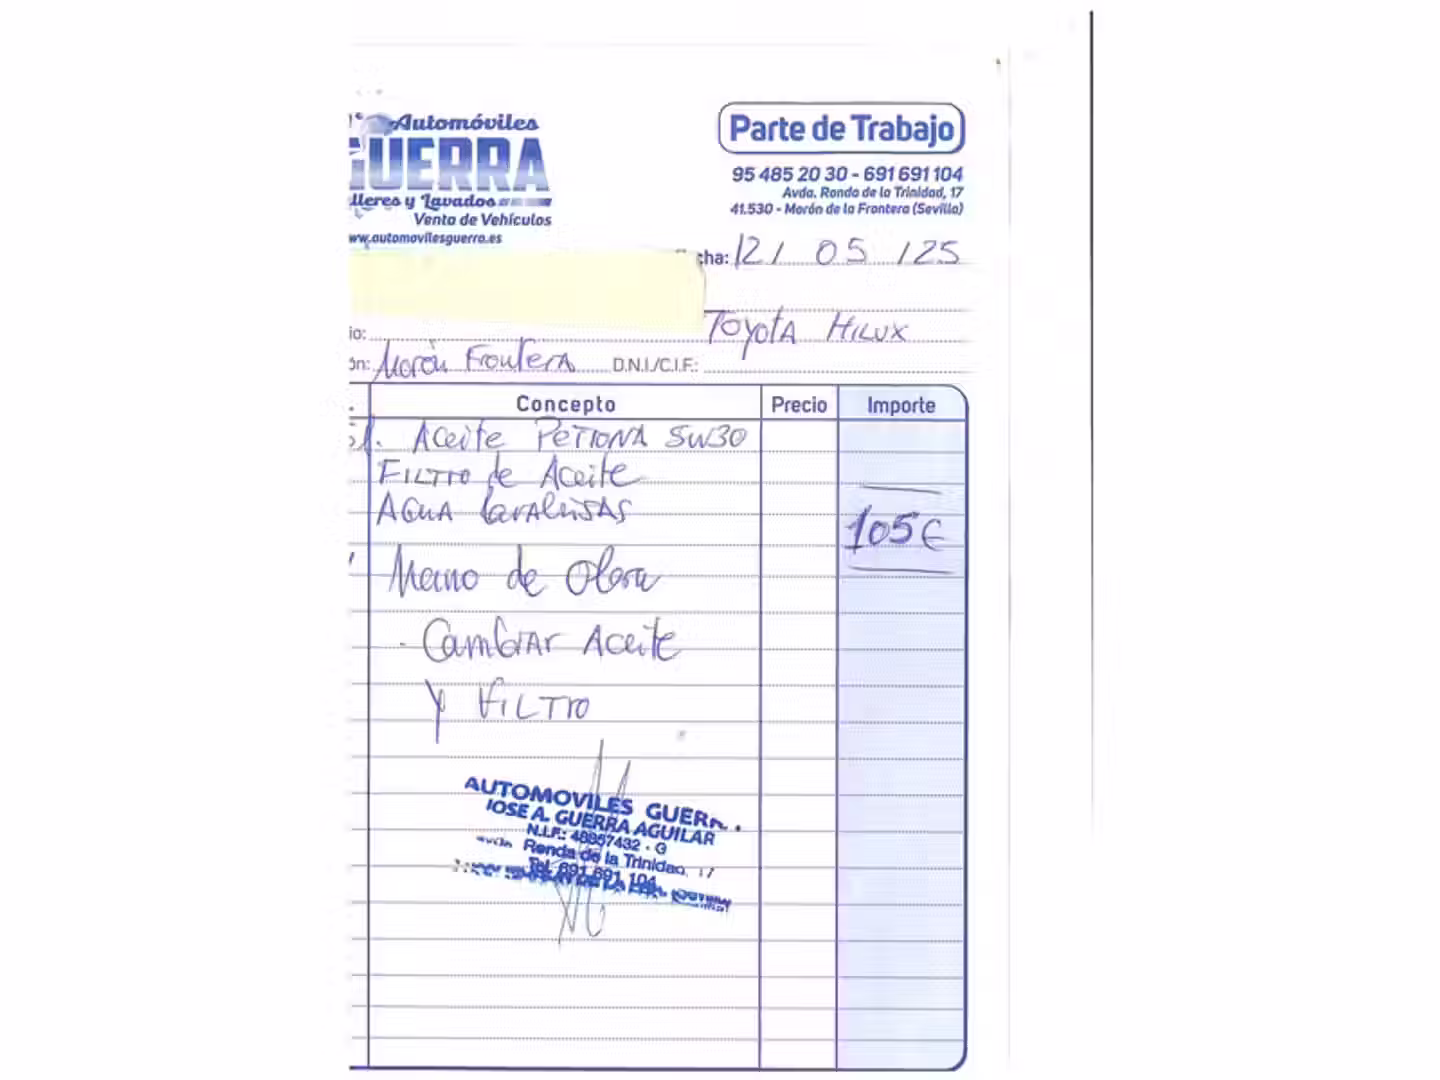 Automóviles
GUERRA
lleres y Lavados
Venta de Vehículos
ww.automovilesguerra.es
Parte de Trabajo
95 485 20 30 - 691 691 104
Avda. Ronda de la Trinidad, 17
41.530 - Morón de la Frontera (Sevilla)
cha: 12 / 05 / 25
Toyota Hilux
io:
ón: Morón Frontera D.N.I./C.I.F.:
Concepto Precio Importe
5l. Aceite Petrona 5W30
Filtro de Aceite
Agua lavalunas
105€
Mano de Obra
- Cambiar Aceite
y Filtro
AUTOMOVILES GUER
JOSE A. GUERRA AGUILAR
N.I.F.: 48857432 - G
Ronda de la Trinidad, 17
Tel. 691 691 104